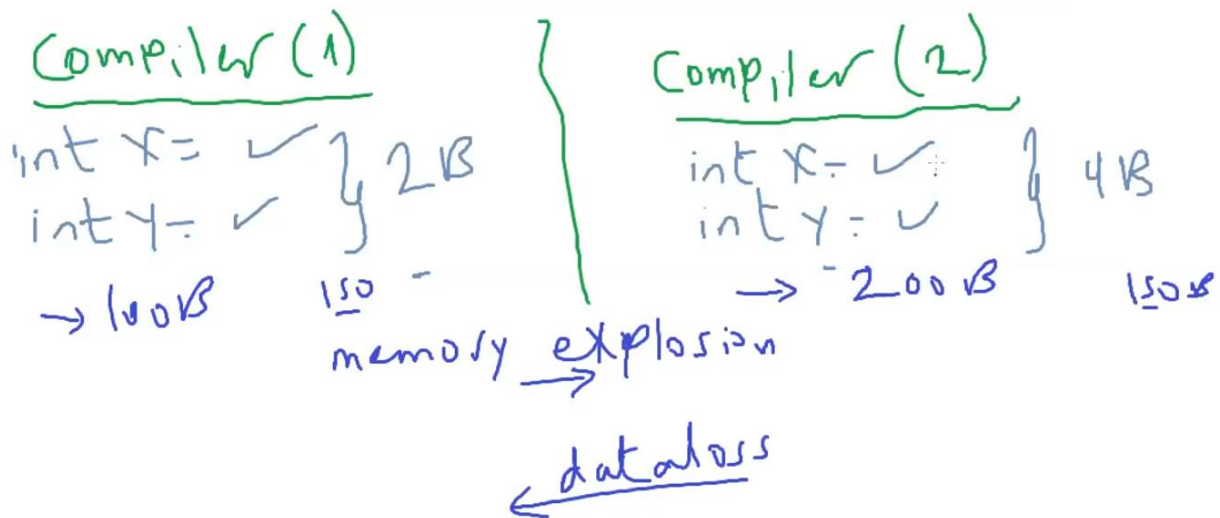 Compiler (1)
int X = ✓
int Y = ✓
} 2B
→ 100B
150 -
Compiler (2)
int X = ✓
int Y = ✓
} 4B
→ 200B
150B
memory explosion
→
dataloss
←